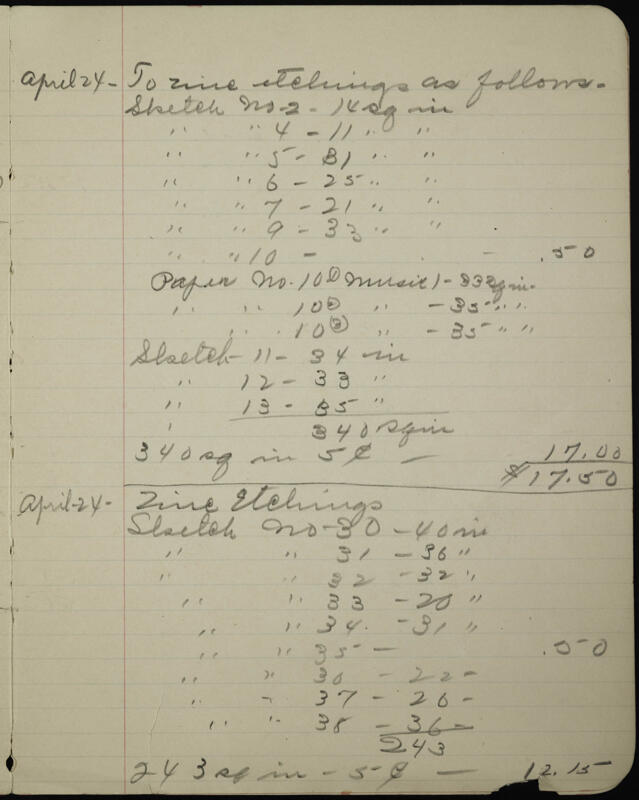 April 24 - To zinc etchings as follows -
Sketch No - 2 - 14 sq in
" " 4 - 11 " "
" " 5 - 31 " "
" " 6 - 25 " "
" " 7 - 21 " "
" " 9 - 33 " "
" " 10 - - .50
Paper No. 10① Music) - 33 sq in.
" " 10② " - 35 " "
" " 10③ " - 35 " "
Sketch - 11 - 34 in
" 12 - 33 "
" 13 - 35 "
340 sq in
340 sq in 5¢ — 17.00
$17.50
April - 24 - Zinc Etchings
Sketch No - 30 - 40 in
" " 31 - 36 "
" " 32 - 32 "
" " 33 - 20 "
" " 34. - 31 "
" " 35 — .50
" " 36 - 22 -
" " 37 - 26 -
" " 38 - 36 -
243
243 sq in - 5¢ — 12.15